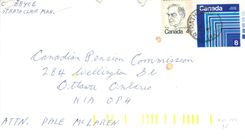 C BOYCE
STRATHCLAIR MAN.
Canada
Canada
8
Canadian Pension Commission
284 Wellington St
Ottawa Ontario
K1A 0P4
ATTN. DALE McLAREN